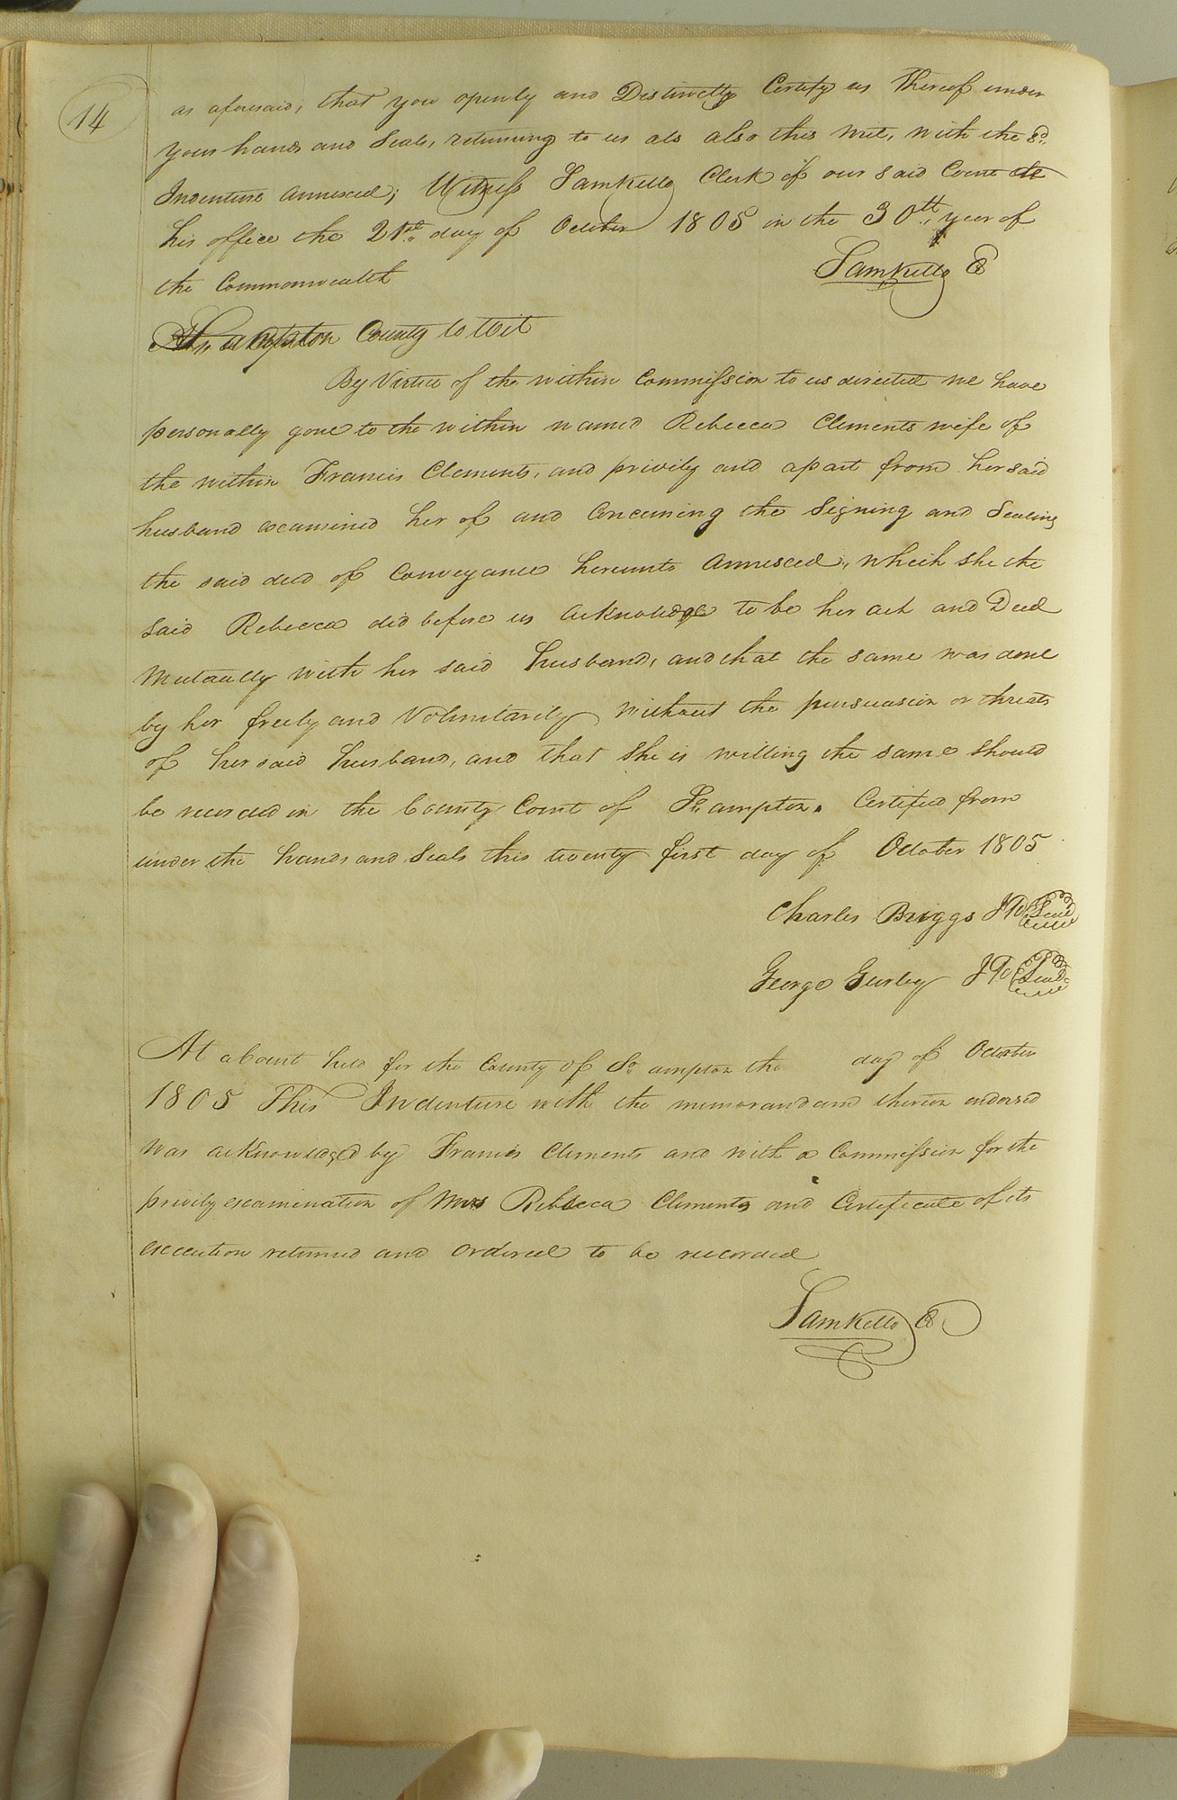 14
as aforesaid, that you openly and Distinctly Certify us Thereof under
your hands and Seals, returning to us als also this writ, with the sd.
Indenture annexed; Witness Samkello Clerk of our said Court at
his office the 21st. day of October 1805 in the 30th. year of
the Commonwealth
Samkello C
Southampton County to Wit
By Virtue of the within Commission to us directed we have
personally gone to the within named Rebecca Clements wife of
the within Francis Clements, and privily and apart from her said
husband examined her of and Concerning the Signing and Sealing
the said deed of Conveyance hereunto annexed, which she the
said Rebecca did before us acknowledge to be her act and Deed
Mutually with her said husband, and that the same was done
by her freely and Voluntarily without the persuasion or threats
of her said husband, and that she is willing the same should
be recorded in the County Court of So.ampton. Certified from
under the hands and Seals this twenty first day of October 1805
Charles Briggs JP Seal
George Gurley JP Seal
At a Court held for the County of So.ampton the day of October
1805 This Indenture with the memorandum thereon endorsed
was acknowledged by Francis Clements and with a Commission for the
privily examination of Mrs Rebecca Clements and Certificate of its
execution returned and ordered to be recorded
Samkello C